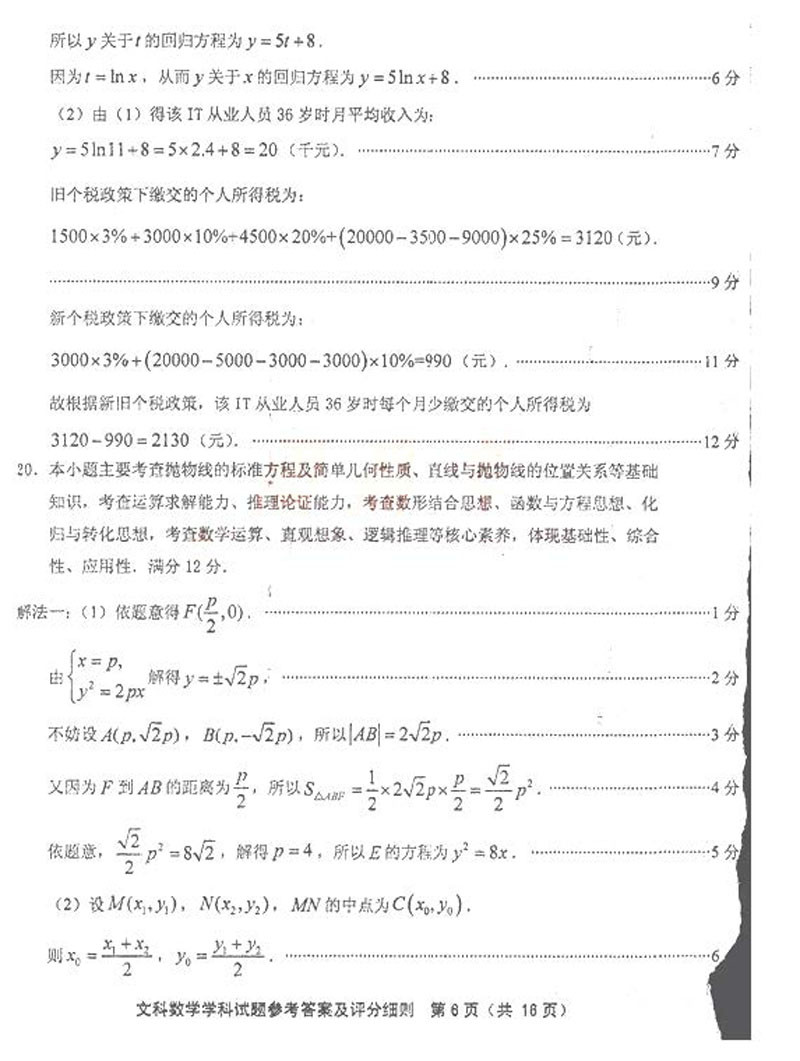 所以 y 关于 t 的回归方程为 y = 5t + 8．
因为 t = ln x，从而 y 关于 x 的回归方程为 y = 5 ln x + 8．……6 分
（2）由（1）得该 IT 从业人员 36 岁时月平均收入为：
y = 5 ln 11 + 8 = 5×2.4 + 8 = 20（千元）．……7 分
旧个税政策下缴交的个人所得税为：
1500×3% + 3000×10% + 4500×20% + (20000 − 3500 − 9000)×25% = 3120（元）．
……9 分
新个税政策下缴交的个人所得税为：
3000×3% + (20000 − 5000 − 3000 − 3000)×10% = 990（元）．……11 分
故根据新旧个税政策，该 IT 从业人员 36 岁时每个月少缴交的个人所得税为
3120 − 990 = 2130（元）．……12 分
20．本小题主要考查抛物线的标准方程及简单几何性质、直线与抛物线的位置关系等基础
知识，考查运算求解能力、推理论证能力，考查数形结合思想、函数与方程思想、化
归与转化思想，考查数学运算、直观想象、逻辑推理等核心素养，体现基础性、综合
性、应用性．满分 12 分．
解法一：（1）依题意得 F(p/2, 0)．……1 分
由 {x = p, y² = 2px 解得 y = ±√2p，……2 分
不妨设 A(p, √2p)，B(p, −√2p)，所以 |AB| = 2√2p．……3 分
又因为 F 到 AB 的距离为 p/2，所以 S△ABF = 1/2 × 2√2p × p/2 = √2/2 p²．……4 分
依题意，√2/2 p² = 8√2，解得 p = 4，所以 E 的方程为 y² = 8x．……5 分
（2）设 M(x₁, y₁)，N(x₂, y₂)，MN 的中点为 C(x₀, y₀)．
则 x₀ = (x₁ + x₂)/2，y₀ = (y₁ + y₂)/2．……6
文科数学学科试题参考答案及评分细则 第 6 页（共 16 页）